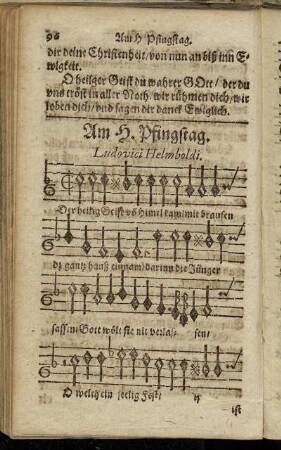 96 Am H. Pfingstag.
dir deine Christenheit / von nun an biß inn E-
wigkeit.
O heilger Geist du wahrer GOtt / der du
vns tröst in aller Noth / wir rühmen dich / wir
loben dich / vnd sagen dir danck Ewiglich.
Am H. Pfingstag.
Ludovici Helmboldi.
Der heilig Geist vō Himel kam / mit brausen
dz gantz hauß einnam / darinn die Jünger
sassen / Gott wolt sie nit verlas- sen /
O welch ein seelig Fest / ij
ist